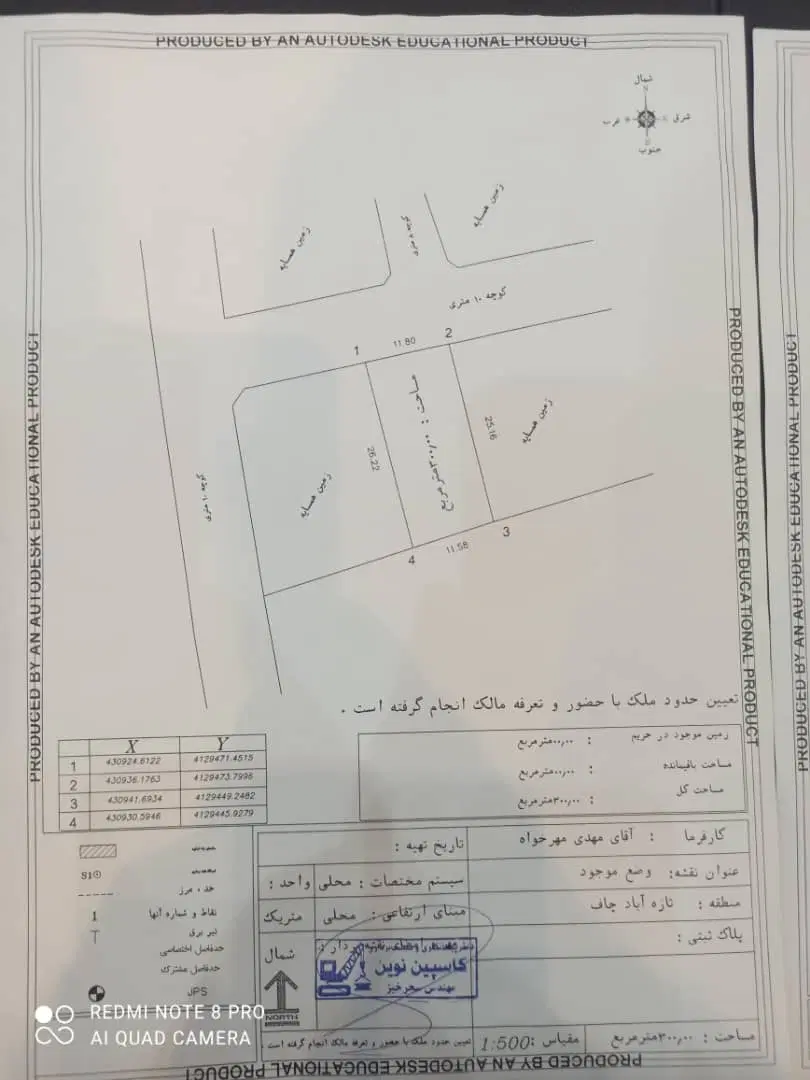 PRODUCED BY AN AUTODESK EDUCATIONAL PRODUCT
شمال
N
غرب
شرق
S
جنوب
زمین همسایه
زمین همسایه
کوچه ۱۰ متری
1
11.80
2
مساحت : ۳۰۰/۰۰مترمربع
26.22
25.16
زمین همسایه
زمین همسایه
کوچه ۱۰ متری
4
11.58
3
PRODUCED BY AN AUTODESK EDUCATIONAL PRODUCT
PRODUCED BY AN AUTODESK EDUCATIONAL PRODUCT
PRODUCED BY AN AUTODESK EDUCATIONAL PRODUCT
تعیین حدود ملک با حضور و تعرفه مالک انجام گرفته است .
X Y
1 430924.6122 4129471.4515
2 430936.1763 4129473.7996
3 430941.6934 4129449.2482
4 430930.5946 4129445.9279
زمین موجود در حریم : ۰۰/۰۰مترمربع
مساحت باقیمانده : ۰۰/۰۰مترمربع
مساحت کل : ۳۰۰/۰۰مترمربع
کارفرما : آقای مهدی مهرخواه
عنوان نقشه: وضع موجود
منطقه : تازه آباد چاف
پلاک ثبتی :
تاریخ تهیه :
سیستم مختصات : محلی
واحد :
مبنای ارتفاعی : محلی
متریک
شمال
NORTH
کاسپین نوین
مهندس سحرخیز
S1
حد ، مرز
1 نقاط و شماره آنها
T تیر برق
حدفاصل اختصاصی
حدفاصل مشترک
JPS
مساحت : ۳۰۰/۰۰مترمربع
مقیاس : 1:500
تعیین حدود ملک با حضور و تعرفه مالک انجام گرفته است .
PRODUCED BY AN AUTODESK EDUCATIONAL PRODUCT
REDMI NOTE 8 PRO
AI QUAD CAMERA